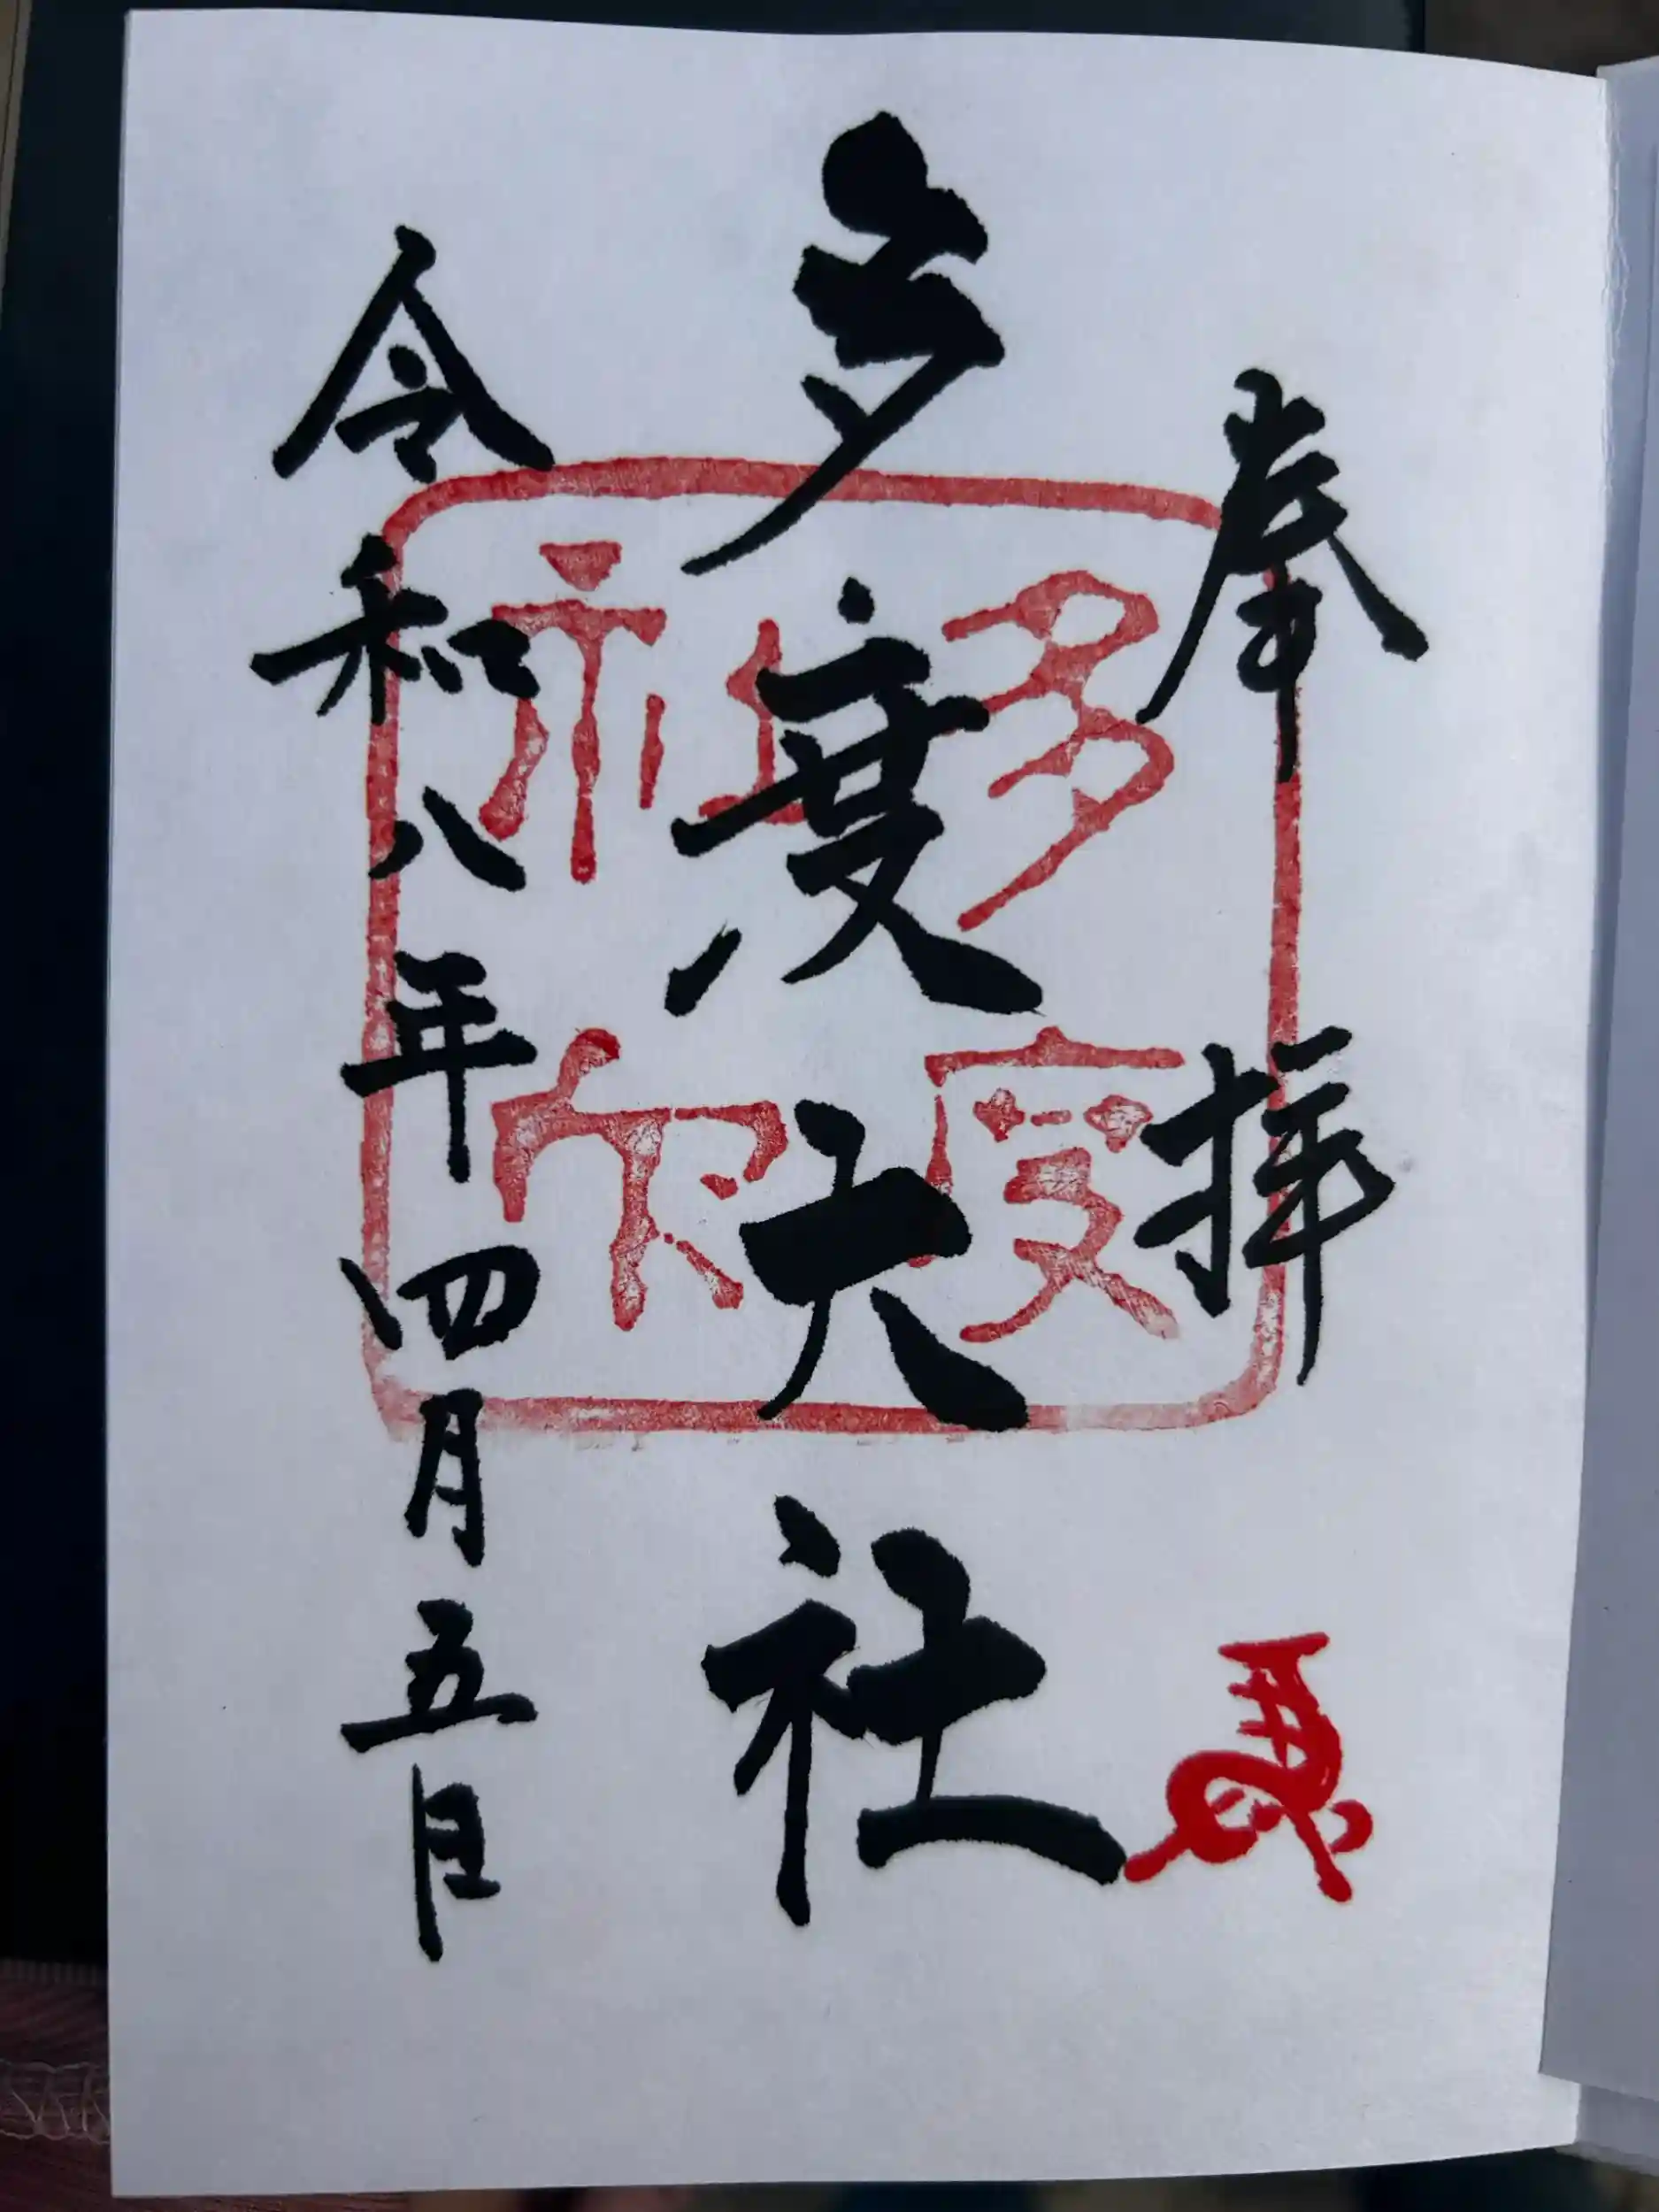 奉拝
多度大社
多度社印
令和八年四月五日